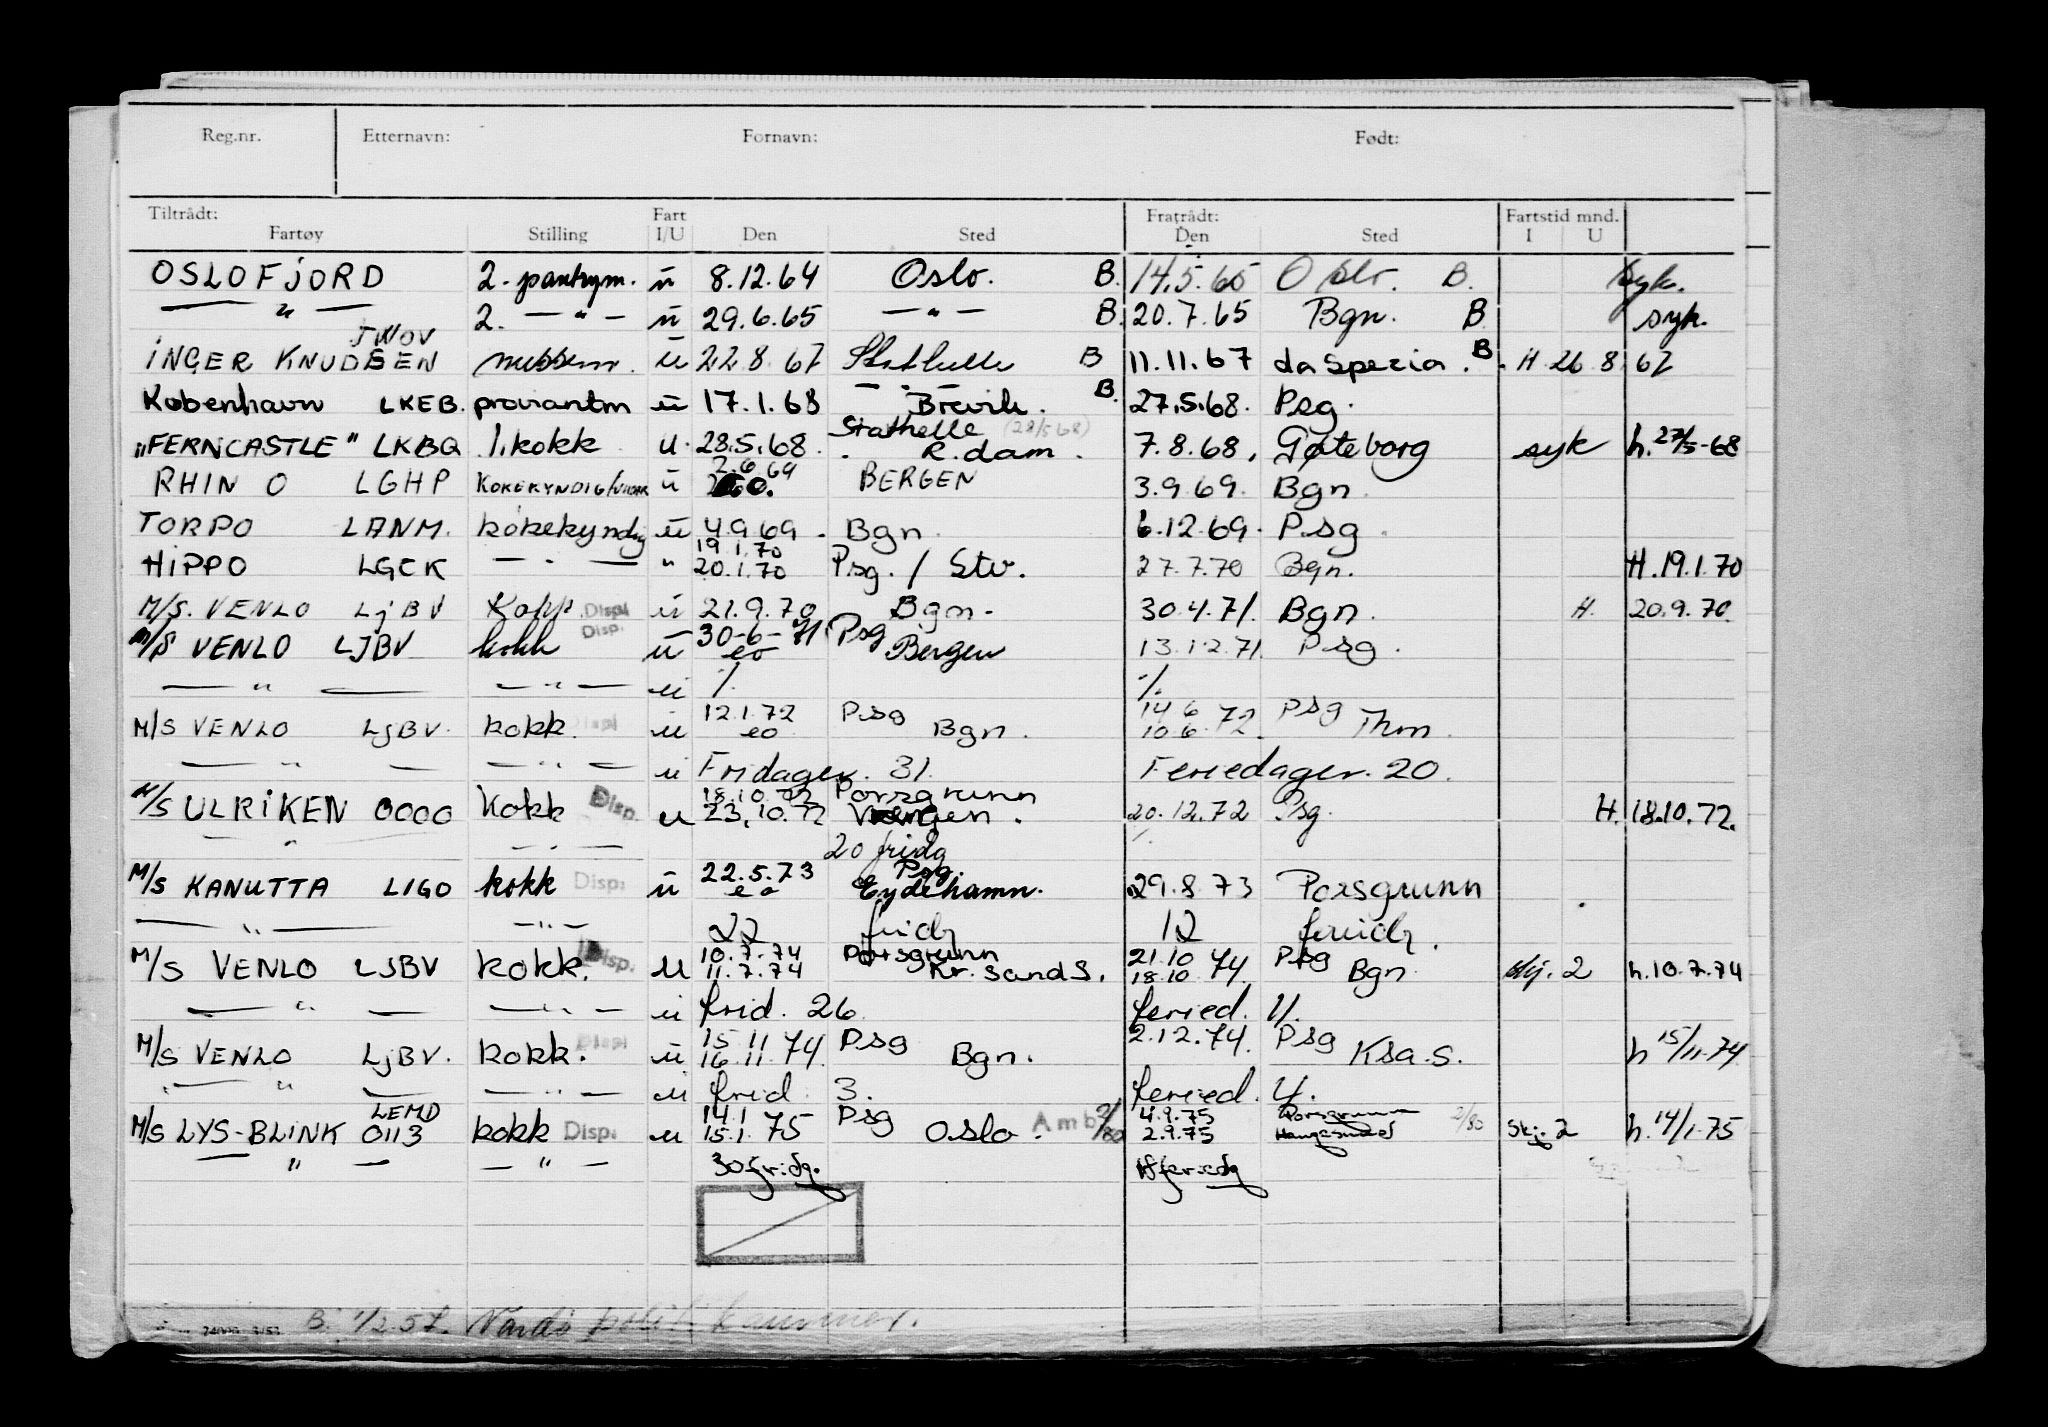 Reg.nr. Etternavn: Fornavn: Født:
Tiltrådt: Fart Fratrådt: Fartstid mnd.
Fartøy Stilling I/U Den Sted Den Sted I U
OSLOFJORD 2. pantrym. u 8.12.64 Oslo. B. 14.5.65 Oslo. B. syk.
— " — 2. — " — u 29.6.65 — " — B. 20.7.65 Bgn. B syk.
JWOV
INGER KNUDSEN messem. u 22.8.67 Stathelle B 11.11.67 La Spezia. B H 26 8 67
København LKEB. proviantm u 17.1.68 — " — Brevik. B. 27.5.68. Psg.
Stathelle (28/5 68)
"FERNCASTLE" LKBQ 1. kokk u. 28.5.68. R.dam. 7.8.68. Gøteborg syk h. 27/5-68
2.6 69
RHINO LGHP KOKEKYNDIG u BERGEN 3.9.69. Bgn.
TORPO LANM. kokekyndig u 4.9.69. Bgn. 6.12.69. Psg.
19.1.70
HIPPO LGCK — " — " 20.1.70 Psg. / Stv. 27.7.70 Bgn. H. 19.1.70
M/S. VENLO LJBV Kokk. Displ u 21.9.70 Bgn. 30.4.71. Bgn. H. 20.9.70.
Disp.
M/S VENLO LJBV kokk u 30-6-71 Psg
eo Bergen 13.12.71. Psg.
— " — — " — u % %
12.1.72 Psg 14 6 72 Psg
M/S VENLO LJBV. kokk. Displ u eo Bgn. 10.6.72. Thm.
— " — — " — u Fridager. 31. Feriedager. 20.
18.10.72 Porsgrunn
M/S ULRIKEN 0000 Kokk Disp. u 23.10.72 20.12.72 Psg. H. 18.10.72.
— " — — " — 20 fridg %
22.5.73 Psg.
M/S KANUTTA LIGO kokk Disp. u eo Eydehamn. 29.8.73 Porsgrunn
— " — — " — 22 fridg 12 feridg.
10.7.74 Porsgrunn 21.10 74 Psg
M/S VENLO LJBV kokk. Disp. u 11.7.74 Kr. sand S. 18.10 74. Bgn skj. 2 h. 10.7.74
— " — — " — u frid. 26 feried. 11.
15 11 74 Psg 2.12.74. Psg
M/S VENLO LJBV. kokk. Displ u 16.11.74 Bgn. Ksa.S. h 15/11.74
— " — — " — u frid 3. feried. 4.
LEMD 14.1 75 Psg 4.9.75 Porsgrunn
M/S LYS-BLINK 0113 kokk Disp. u 15.1.75 Oslo. Amb 2/80 2.9.75 Haugesund 2/80 Skj. 2 h. 14/1.75
— " — — " — 30 fridg. 18 feriedg
B. 1/2.57. Vardø politikammer.